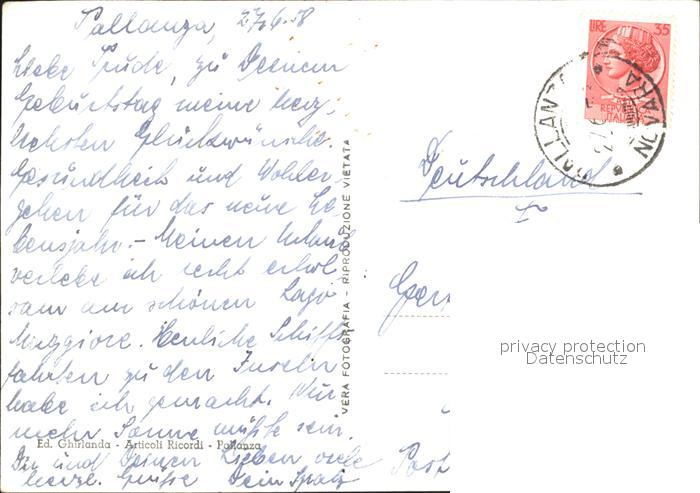 Pallanza, 27.6.58
Liebe Trude, zu Deinem
Geburtstag meine herz-
lichsten Glückwünsche.
Gesundheit und Wohler-
gehen für das neue Le-
bensjahr. – Meinen Urlaub
verlebe ich recht erhol-
sam am schönen Lago
Maggiore. Herrliche Schiff-
fahrten zu den Inseln
habe ich gemacht. Nur
mehr Sonne müßte sein.
Dir und Deinen Lieben viele
herzl. Grüße Dein
Ed. Ghirlanda - Articoli Ricordi - Pallanza
VERA FOTOGRAFIA - RIPRODUZIONE VIETATA
LIRE 35
REPUBBLICA
ITALIANA
PALLANZA
NOVARA
Deutschland
Post
privacy protection
Datenschutz